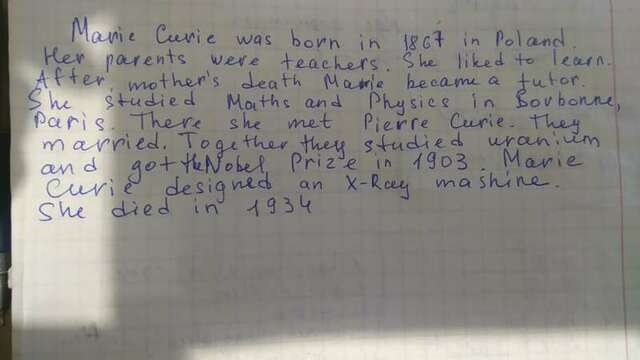 Marie Curie was born in 1867 in Poland.
Her parents were teachers. She liked to learn.
After mother's death Marie became a tutor.
She studied Maths and Physics in Sorbonne,
Paris. There she met Pierre Curie. They
married. Together they studied uranium
and got the Nobel Prize in 1903. Marie
Curie designed an X-Ray mashine.
She died in 1934